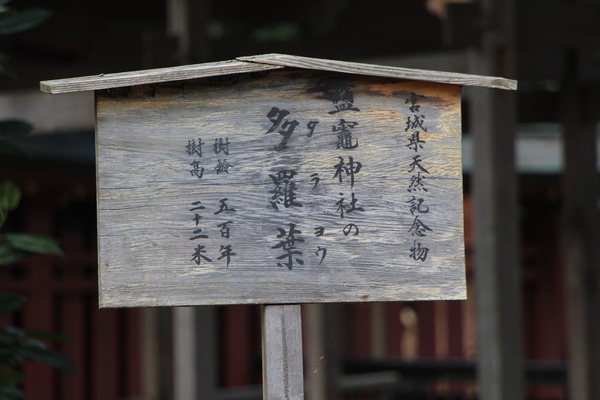 宮城県天然記念物
鹽竈神社の
多羅葉
タラヨウ
樹齢 五百年
樹高 二十二米